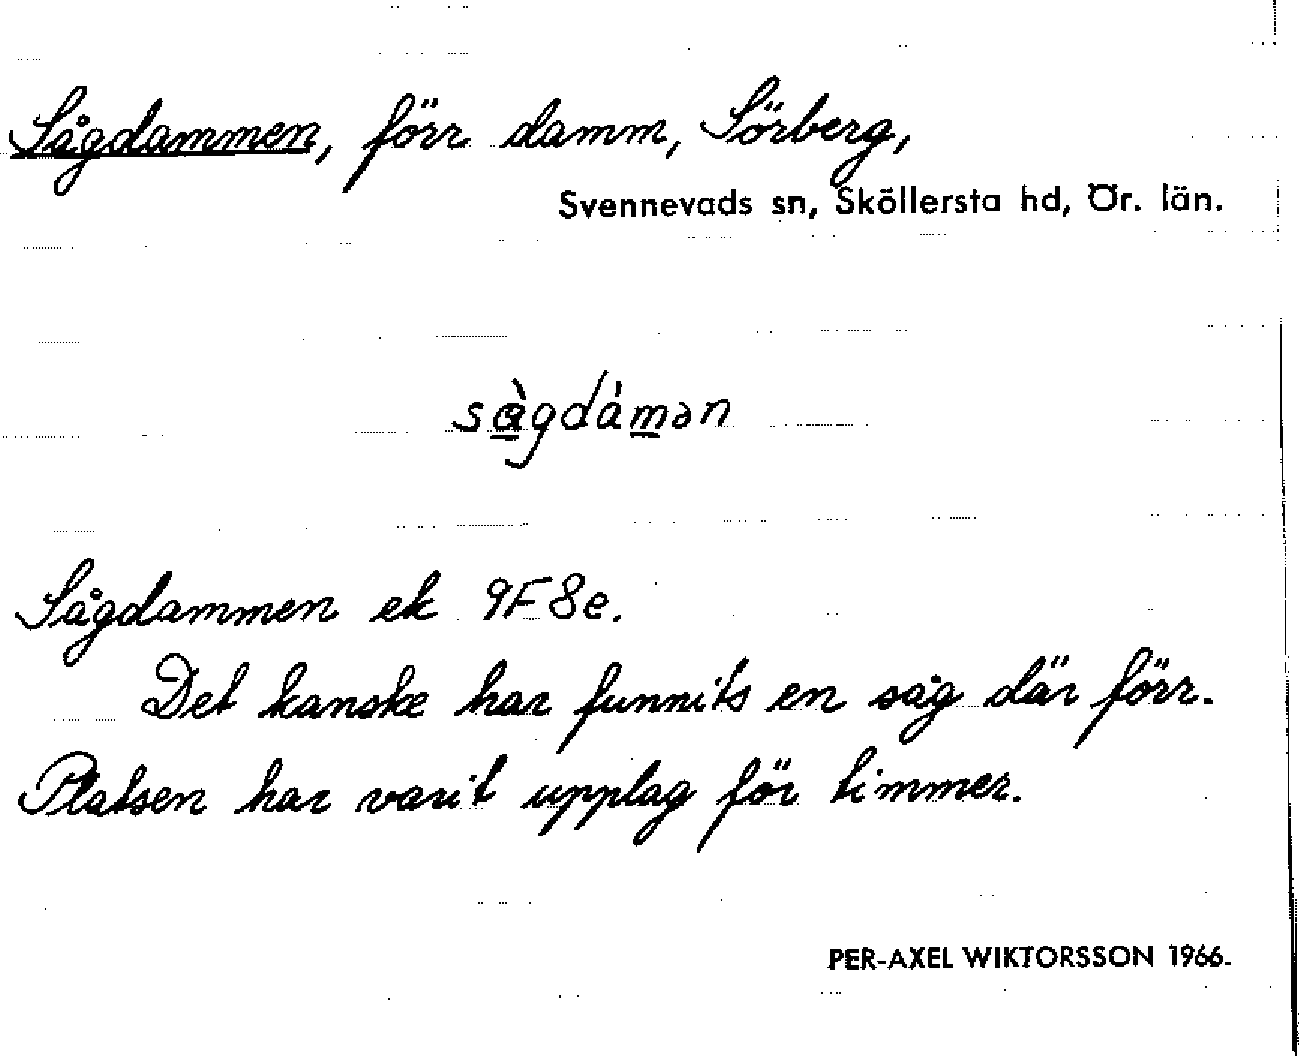 Sågdammen, förr damm, Sörberg,
Svennevads sn, Sköllersta hd, Ör. län.
sàgdámən
Sågdammen ek 9F8e.
Det kanske har funnits en såg där förr.
Platsen har varit upplag för timmer.
PER-AXEL WIKTORSSON 1966.